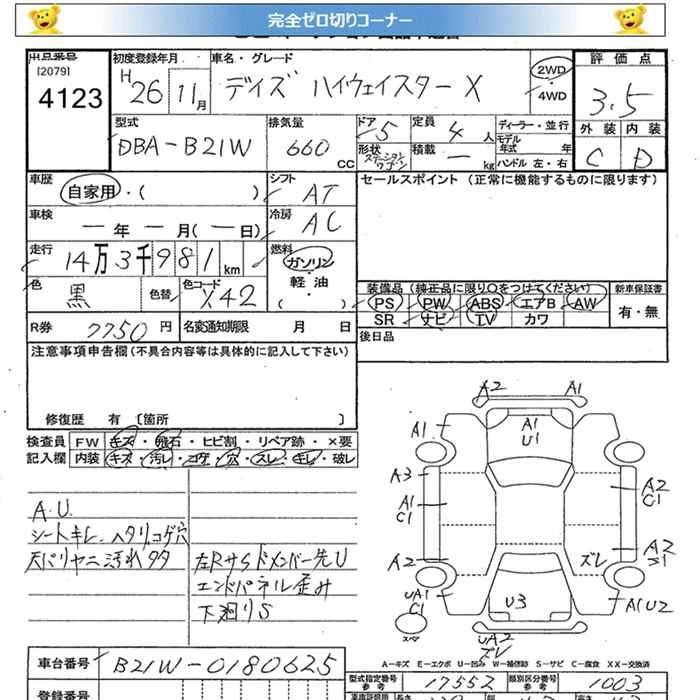 完全ゼロ切りコーナー
出品番号 初度登録年月 車名・グレード 評価点
[2079]
4123 H 26 11月 デイズ ハイウェイスター X 2WD ・ 4WD 3.5
型式 排気量 ドア 定員 ディーラー・並行 外装 内装
DBA-B21W 660 CC 5 4 人 モデル年式 年 C D
形状 ステーションワゴン 積載 ー kg ハンドル 左・右
車歴 シフト セールスポイント (正常に機能するものに限ります)
自家用・( ) AT
車検 冷房
ー 年 ー 月(ー日) AC
走行 燃料
14万3千981km ガソリン・軽油・( )
色 色替 色コード 装備品 (純正品に限り○をつけてください) 新車保証書
黒 X42 PS PW ABS エアB AW 有・無
SR ナビ TV カワ
R券 7750 円 名変通知期限 月 日 後日品
注意事項申告欄(不具合内容等は具体的に記入して下さい)
修復歴 有 [箇所 ]
検査員 FW キズ・飛石・ヒビ割・リペア跡・×要
記入欄 内装 キズ・汚レ・コゲ・穴・スレ・キレ・破レ
A.U.
シートキレ、ヘタリ、コゲ穴
天バリヤニ汚れタタ
左Rサイドメンバー先U
エンドパネル歪み
下廻りS
A2 A1
A1 A1
U1
A3 A2
C1
A1
C1
A2 ズレ A2
S1
UA1
C1 U3 A1U2
スペア UA2
ズレ
A-キズ E-エクボ U-凹み W-補修跡 S-サビ C-腐食 XX-交換済
車台番号 B21W-0180625
型式指定番号 参考 17552 類別区分番号 参考 1003
登録番号